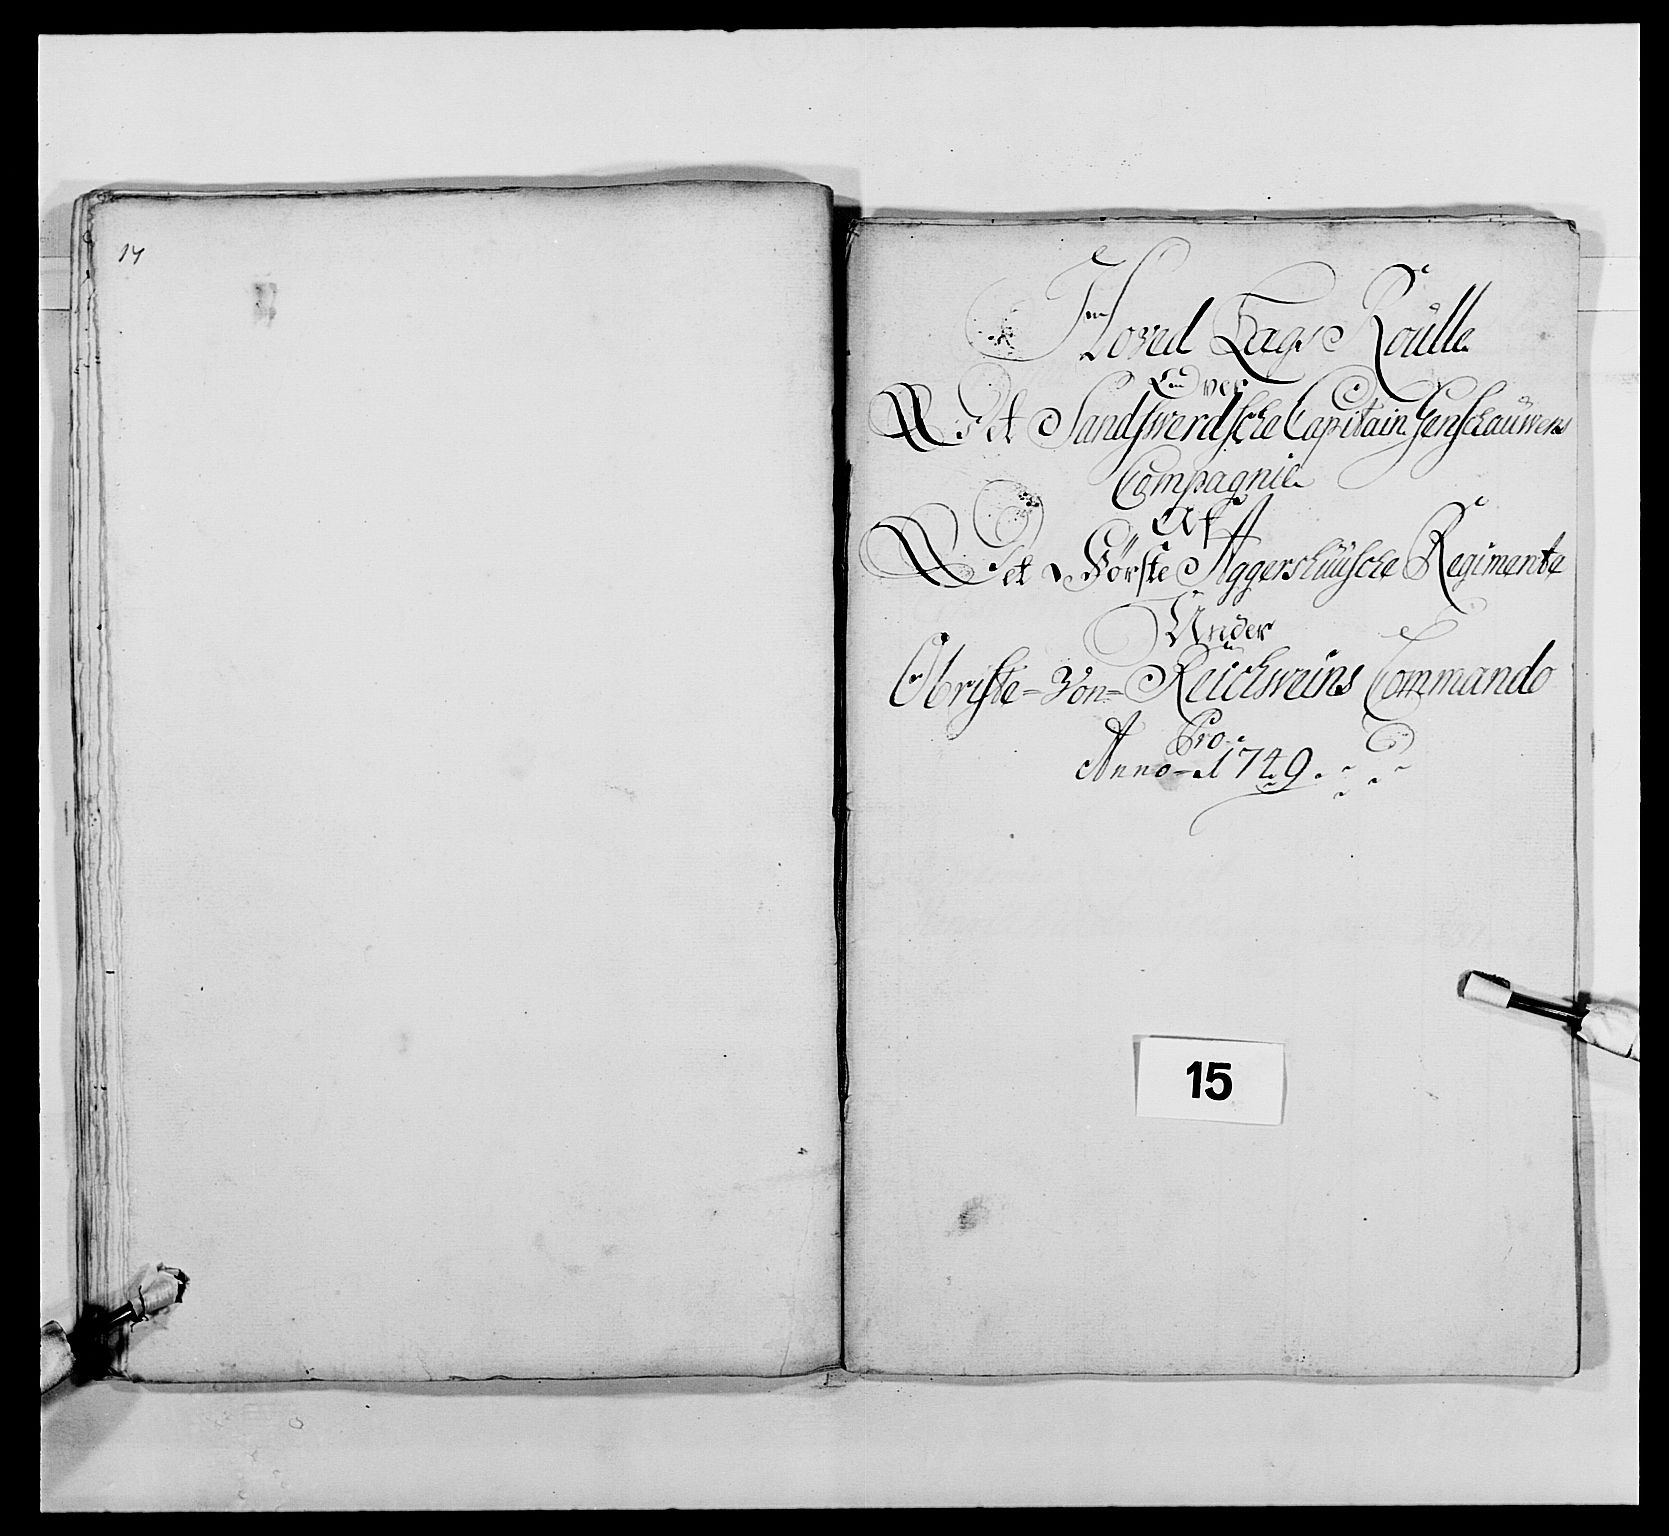 14
Hoved Lægs Roülle
Over
Det Sandswerdsche Capitain Henschauwens
Compagnie
Af
Det Förste Aggershüüsche Regimente
Under
Obriste = Von = Reichweins Commando
Pro
Anno 1749.
15